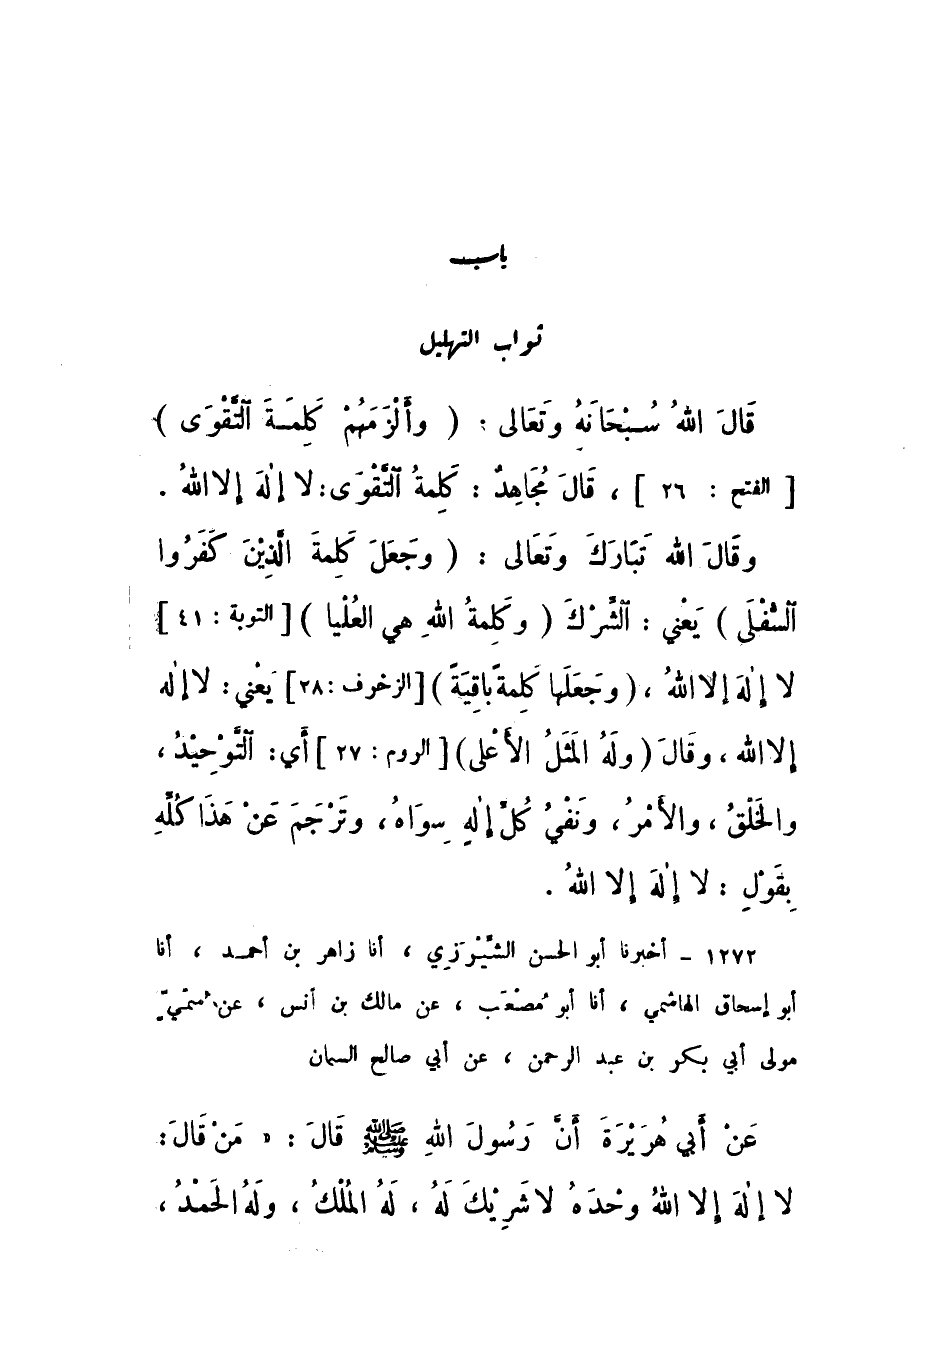 باب
ثواب التهليل
قَالَ اللهُ سُبْحَانَهُ وتَعَالى : ( وأَلْزَمَهُمْ كَلِمَةَ التَّقْوَى )
[ الفتح : ٢٦ ] ، قَالَ مُجَاهِدٌ : كَلِمةُ التَّقْوَى : لا إِلٰهَ إلا اللهُ .
وقَالَ الله تَبَارَكَ وتَعَالى : ( وجَعَلَ كَلِمةَ الَّذِيْنَ كَفَرُوا
السُّفْلَى ) يَعْني : الشِّرْكَ ( وكَلِمةُ اللهِ هي العُلْيا ) [ التوبة : ٤١ ]
لا إِلٰهَ إلا اللهُ ، ( وجَعَلَها كَلِمةً باقِيَةً ) [ الزخرف : ٢٨ ] يَعْني : لا إلٰه
إلا الله ، وقَالَ ( ولَهُ المَثَلُ الأَعْلى ) [ الروم : ٢٧ ] أَي : التَّوْحِيْدُ ،
والخَلْقُ ، والأَمْرُ ، ونَفْيُ كُلِّ إلٰهٍ سِوَاهُ ، وتَرْجَمَ عَنْ هَذَا كُلِّهِ
بِقَوْلِ : لا إِلٰهَ إلا اللهُ .
١٢٧٢ - أخبرنا أبو الحسن الشِّيْرَزي ، أنا زاهر بن أحمد ، أنا
أبو إسحاق الهاشمي ، أنا أبو مُصْعَب ، عن مالك بن أنس ، عن سُمَيّ
مولى أبي بكر بن عبد الرحمن ، عن أبي صالح السمان
عَنْ أَبي هُرَيْرَةَ أَنَّ رَسُولَ اللهِ ﷺ قَالَ : « مَنْ قَالَ :
لا إِلٰهَ إلا اللهُ وحْدَهُ لا شَرِيْكَ لَهُ ، لَهُ المُلْكُ ، ولَهُ الحَمدُ ،